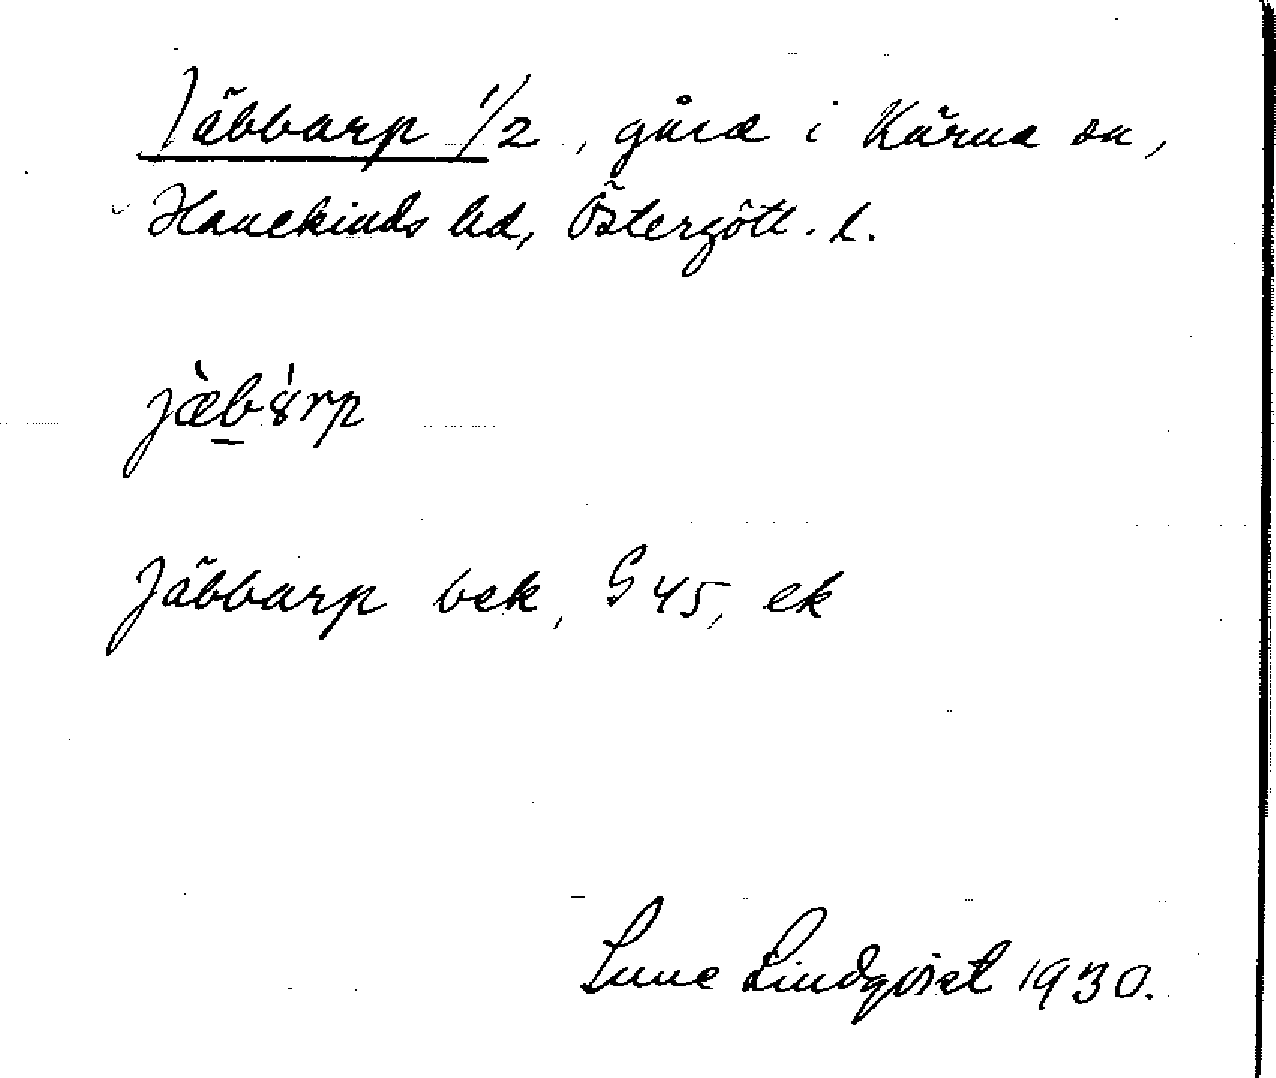 Jäbbarp 1/2, gård i Kärna sn,
Hanekinds hd, Östergötl. l.
jæ̀b̲ȣ́rp
Jäbbarp bek, S 45, ek
Sune Lindqvist 1930.